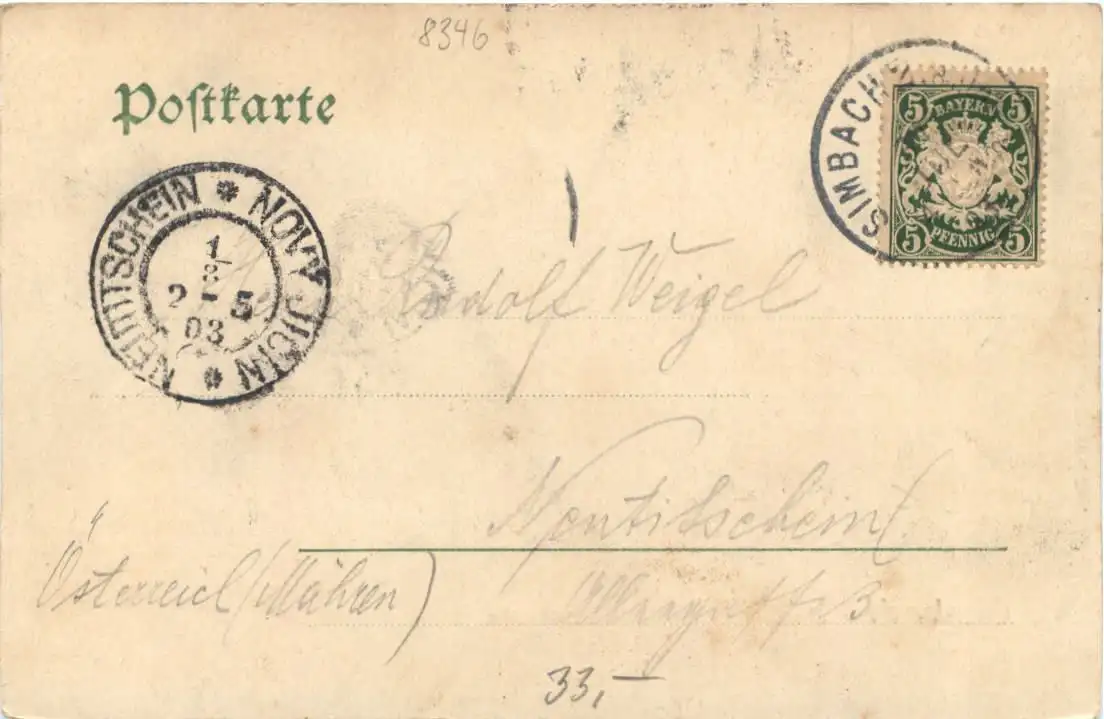 8346
Postkarte
SIMBACH
5 BAYERN 5
5 PFENNIG 5
NEUTITSCHEIN * NOVÝ JIČÍN *
1/8
2 5
03
Rudolf Weigel
Neutitschein
Österreich (Mähren)
33,-